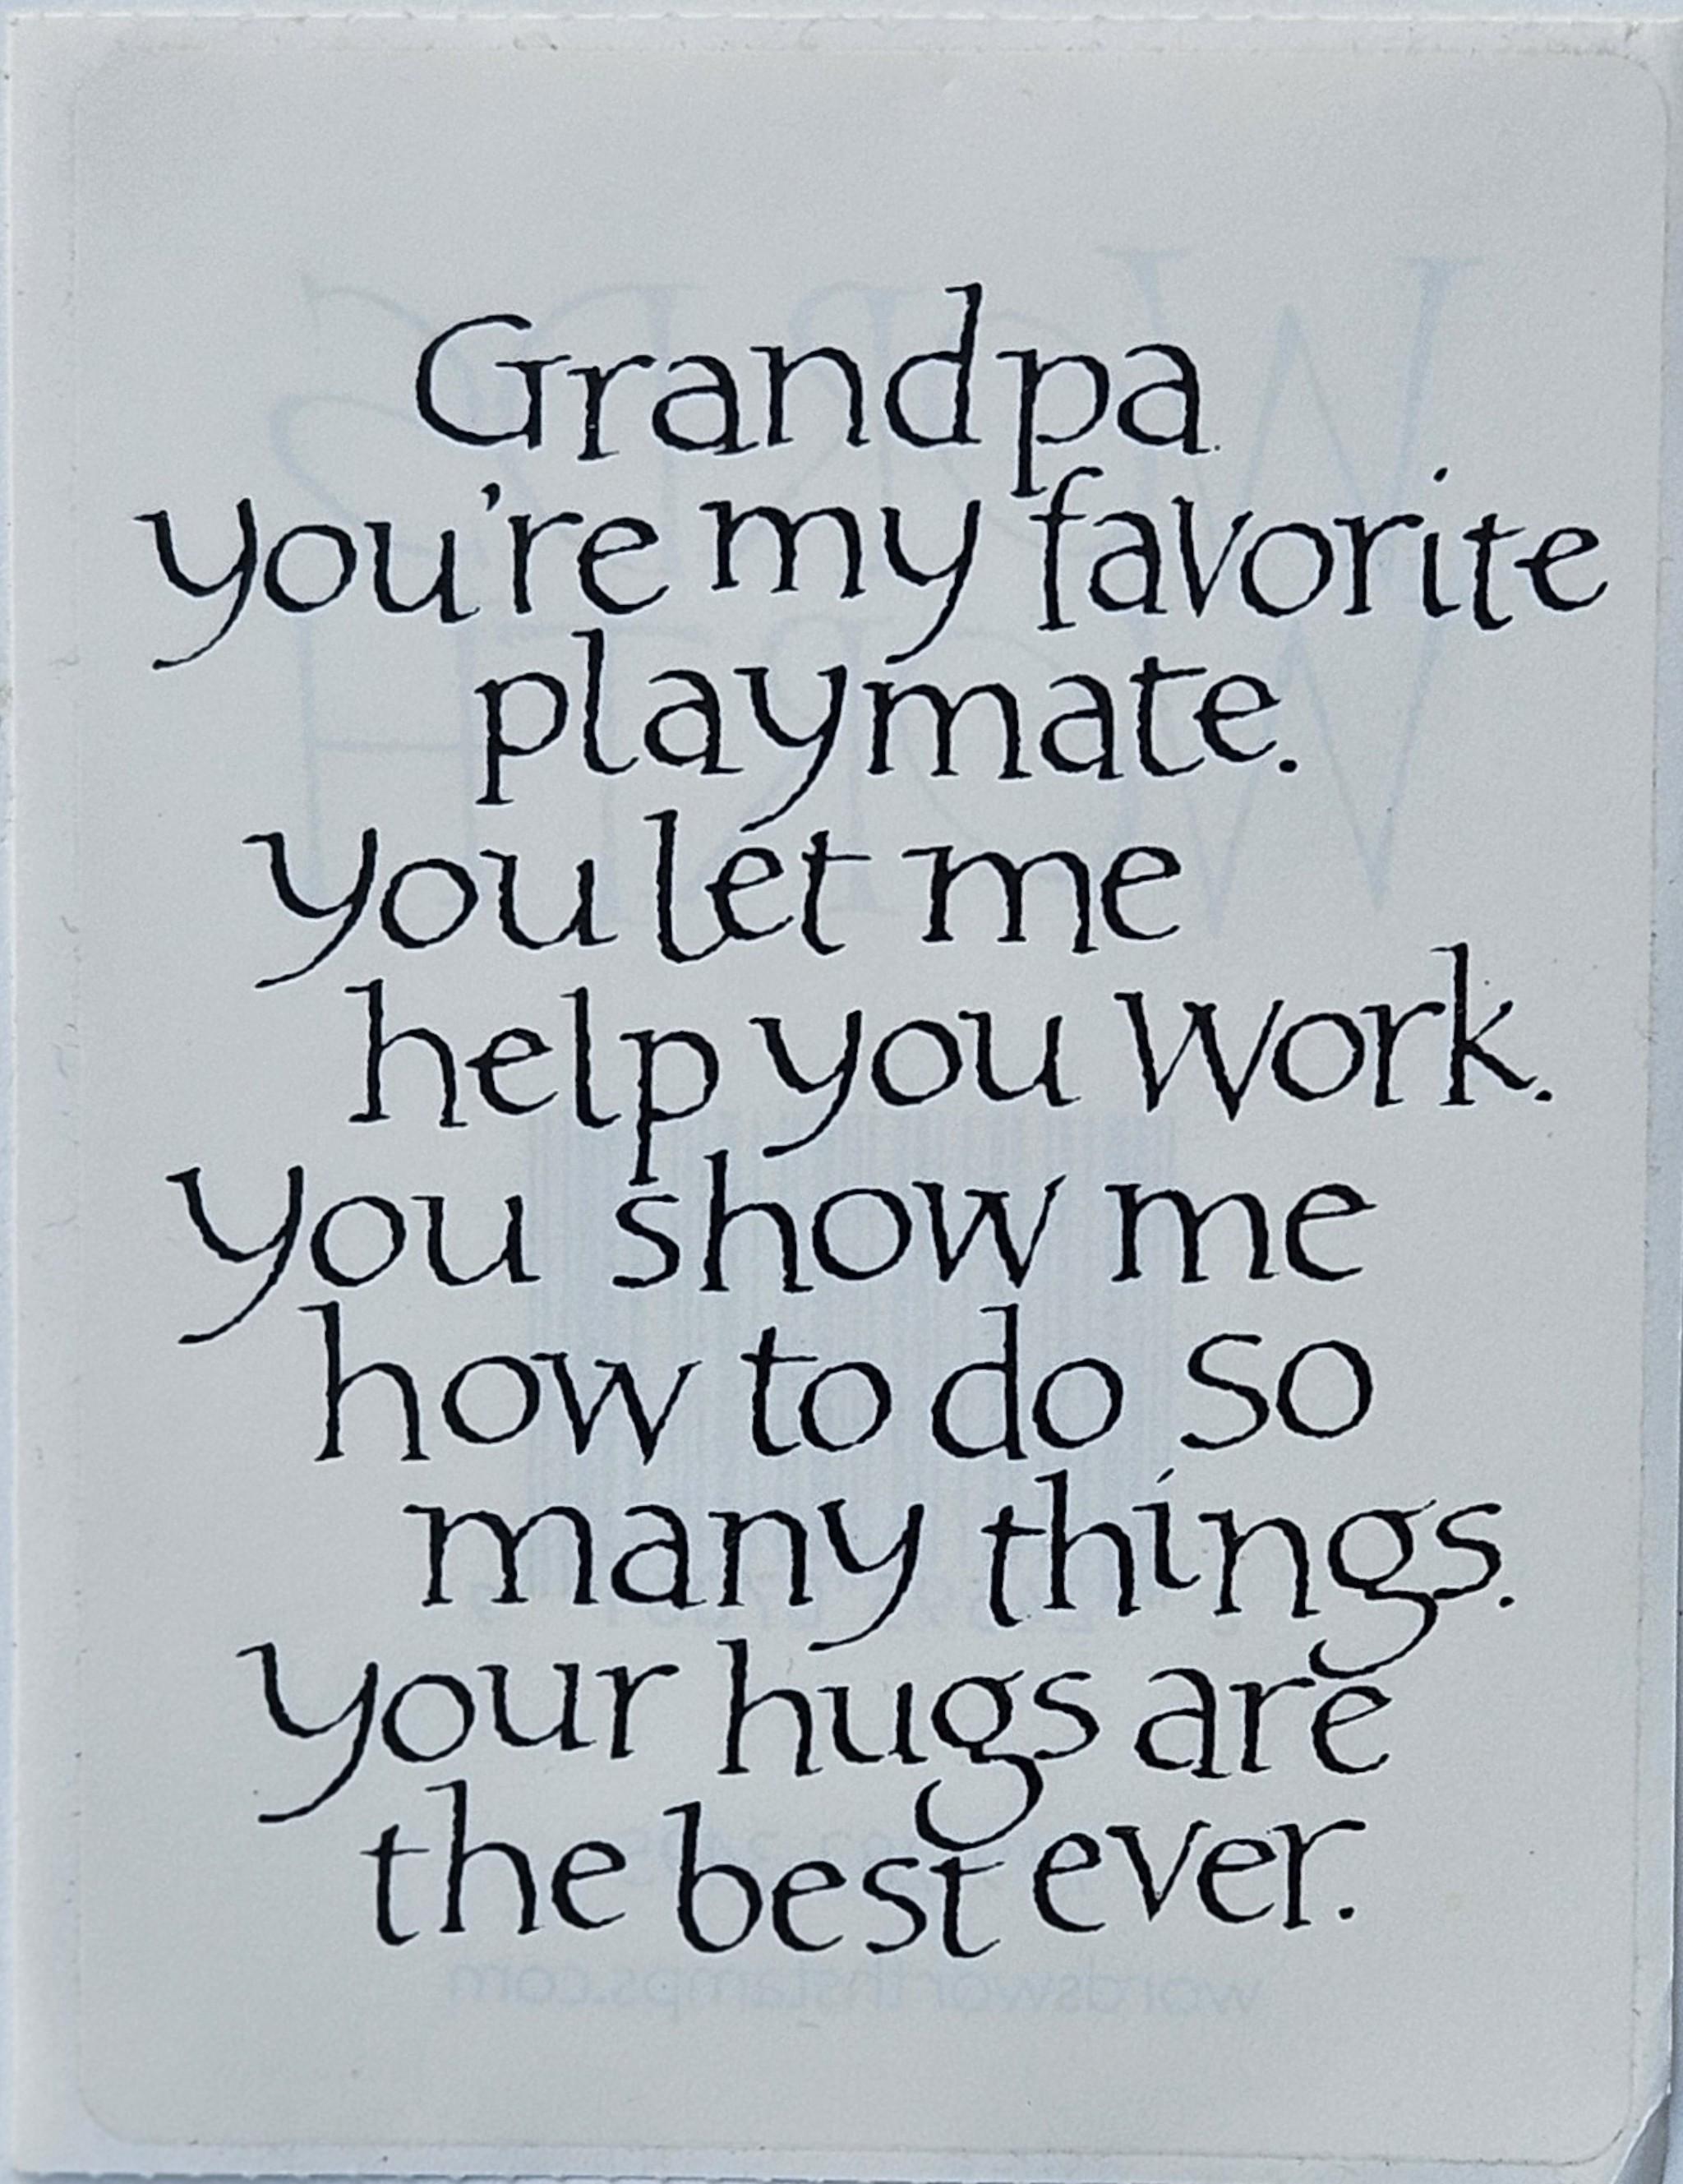 Grandpa
you're my favorite
playmate.
You let me
help you work.
You show me
how to do so
many things.
Your hugs are
the best ever.
wordsworthstamps.com